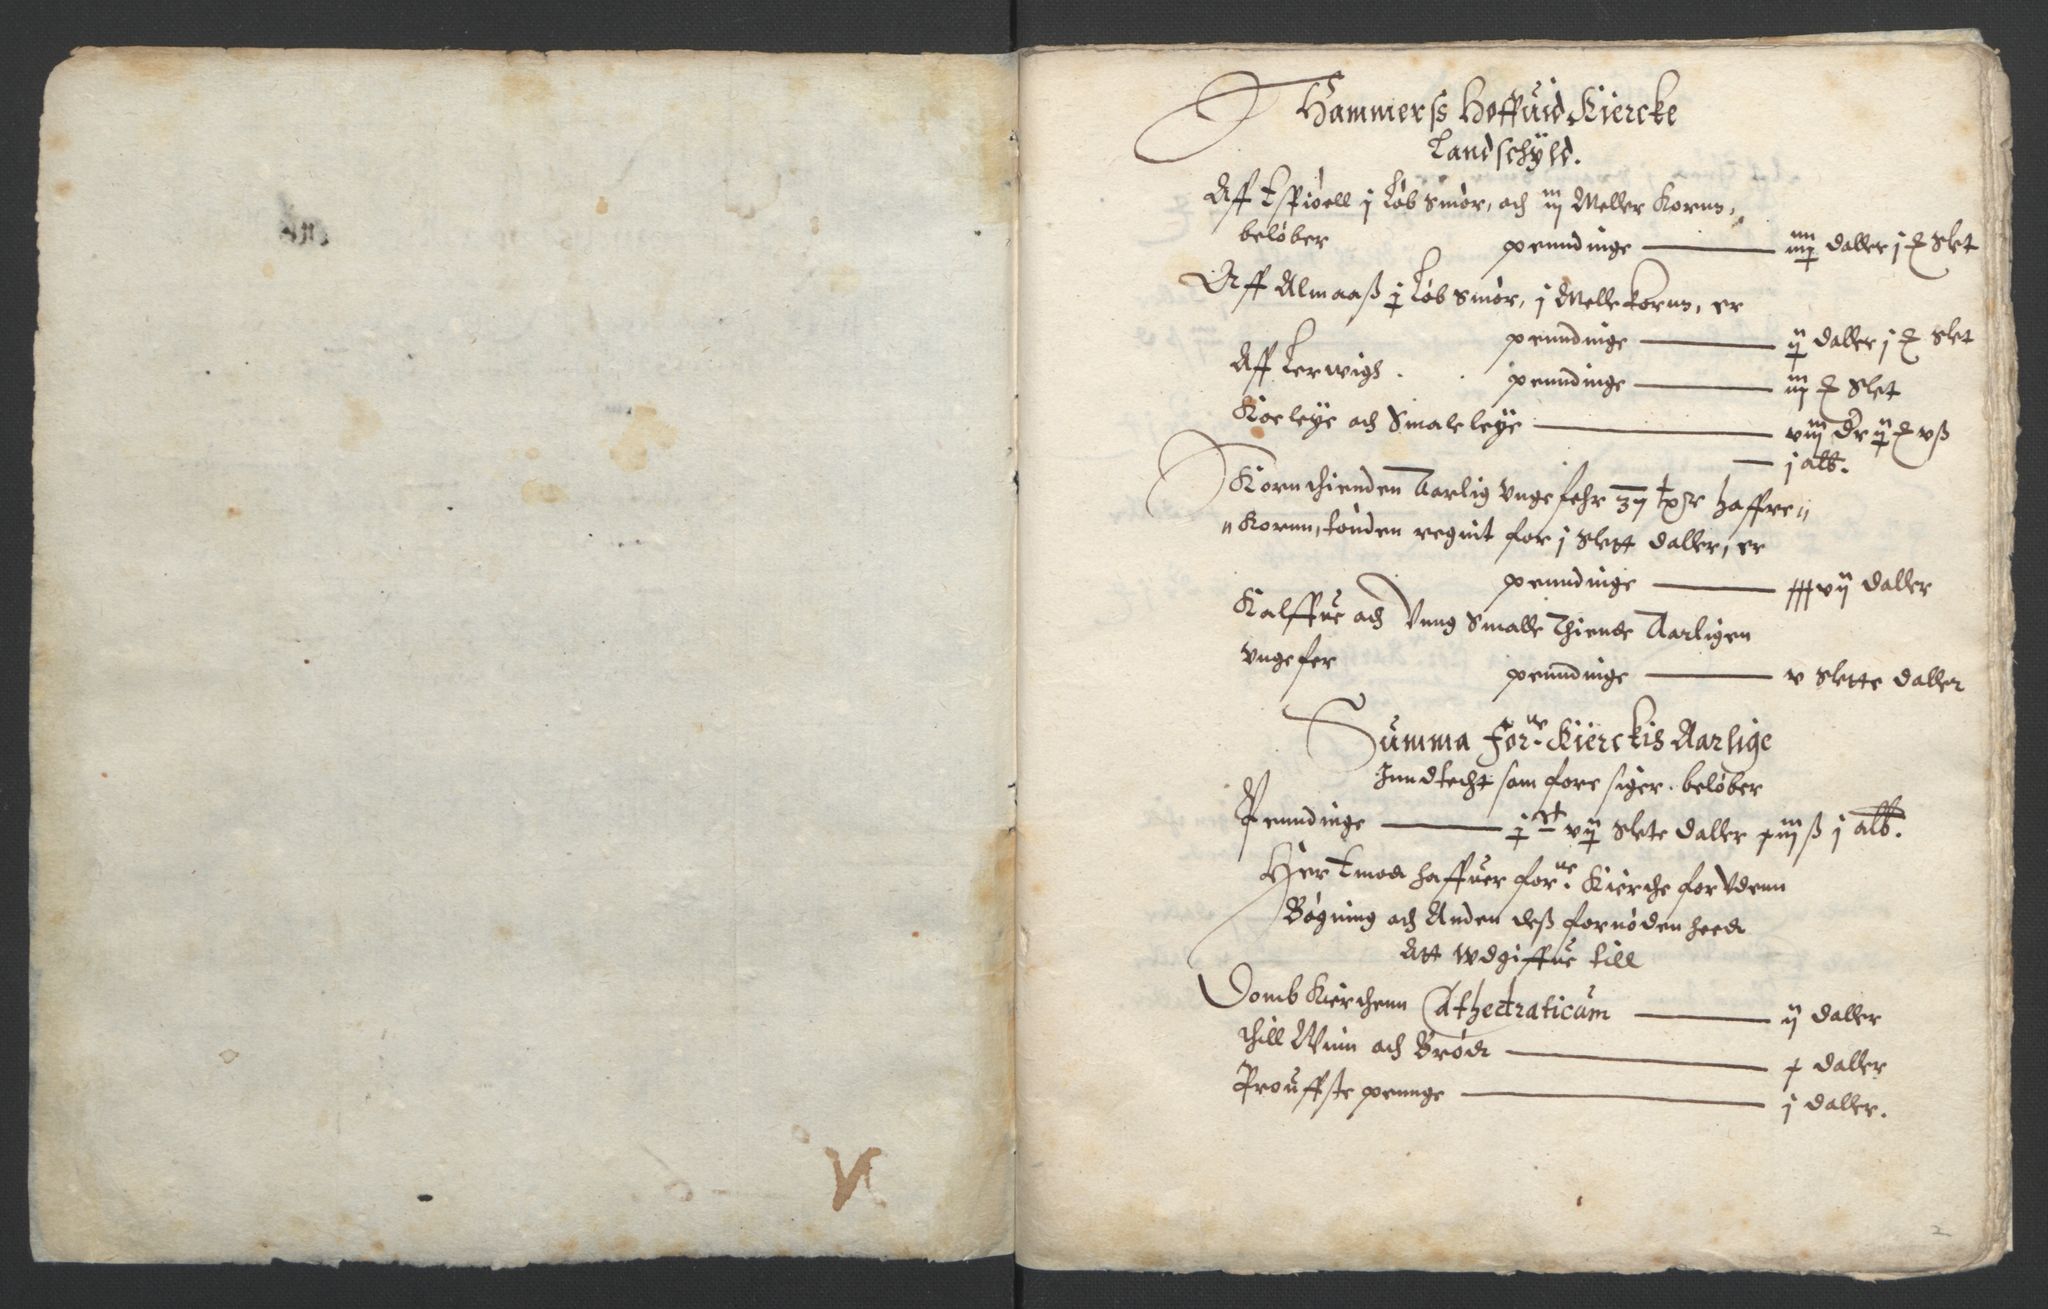 Hammerss Hoffuid Kiercke
Landschÿld.
Aff Espiøell j Løb smør, och iij Meller Kornn,
beløber penndinge daller j slet
Aff Almaaß Løb smør, j Melle kornn, er
penndinge daller j slet
Aff Lerwigh penndinge iij slet
Koe leÿe och Smale leÿe viij dr
j alb.
Kornthienden Aarlig Ungefehr 37 haffre
Kornn, tønden regnit for j slett daller, er
penndinge xxxvij daller
Kalffue och Unng Smalle Thiende Aarligen
Ungefer penndinge v slette daller
Summa For.ne Kierckis Aarlige
Inndtecht som fore siger. beløber
Penndinge slete daller ß j alb.
Her Emod haffuer for.ne Kierche forUdenn
Bøgning och Anden deß fornødenheed
Att wdgiffue till
Domb Kierchenn Cathedraticum ij daller
thill Wiin och Brød x daller
Prouffste pennge j daller.
2